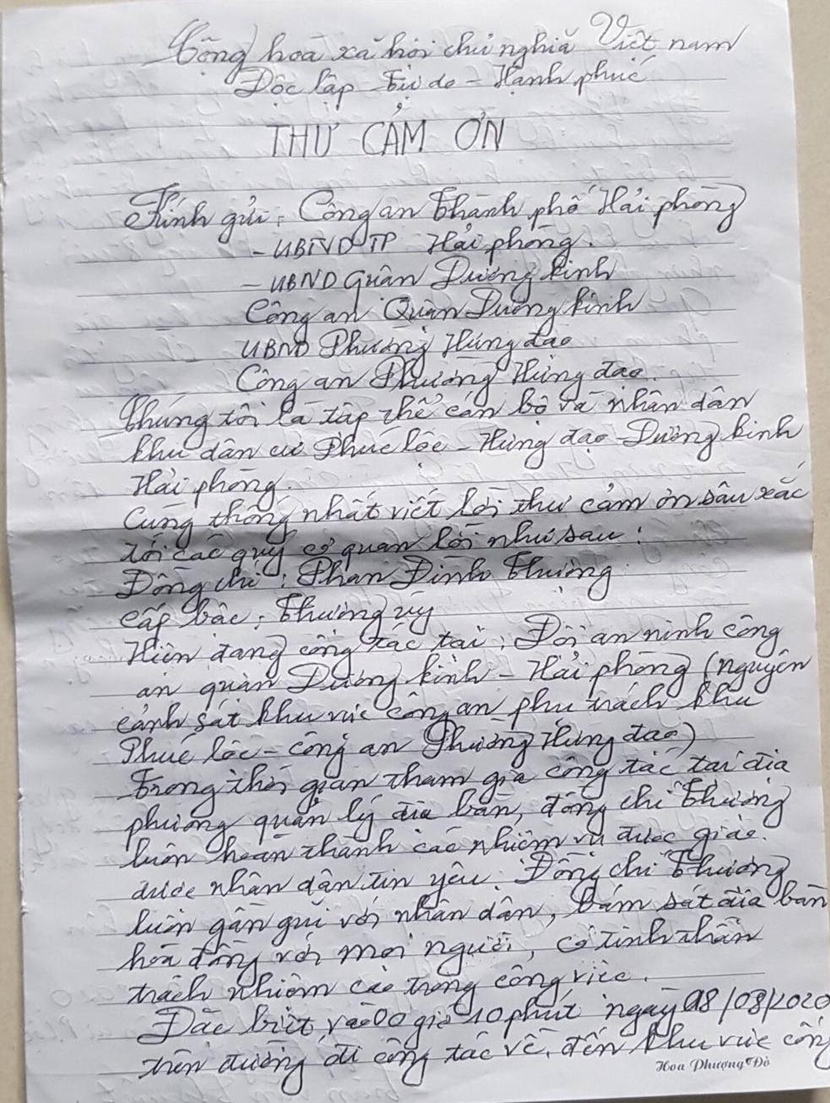 Cộng hoà xã hội chủ nghĩa Việt nam
Độc lập - Tự do - Hạnh phúc
THƯ CẢM ƠN
Kính gửi: Công an Thành phố Hải phòng
- UBND TP Hải phòng.
- UBND Quận Dương kinh
Công an Quận Dương kinh
UBND Phường Hưng đạo
Công an Phường Hưng đạo.
Chúng tôi là tập thể cán bộ và nhân dân
khu dân cư Phúc lộc - Hưng đạo - Dương kinh
Hải phòng.
Cùng thống nhất viết lời thư cảm ơn sâu sắc
tới các quý cơ quan lời như sau:
Đồng chí: Phan Đình Thương
cấp bậc: Thượng úy
Hiện đang công tác tại: Đội an ninh công
an quận Dương kinh - Hải phòng (nguyên
cảnh sát khu vực công an phụ trách khu
Phúc lộc - công an Phường Hưng đạo)
Trong thời gian tham gia công tác tại địa
phương quản lý địa bàn, đồng chí Thương
luôn hoàn thành các nhiệm vụ được giao.
được nhân dân tin yêu. Đồng chí Thương
luôn gần gũi với nhân dân, bám sát địa bàn
hòa đồng với mọi người, có tinh thần
trách nhiệm cao trong công việc.
Đặc biệt, vào 00 giờ 10 phút ngày 08/08/2020
trên đường đi công tác về, đến khu vực cống
Hoa Phượng Đỏ